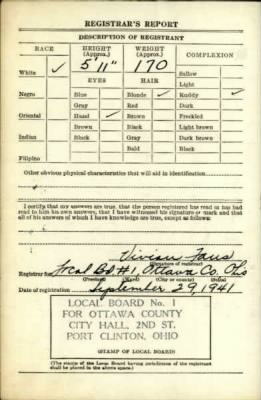 REGISTRAR'S REPORT
DESCRIPTION OF REGISTRANT
RACE HEIGHT (Approx.) WEIGHT (Approx.) COMPLEXION
5'11" 170
White ✓ Sallow
EYES HAIR Light
Negro Blue Blonde ✓ Ruddy ✓
Gray Red Dark
Oriental Hazel ✓ Brown Freckled
Brown Black Light brown
Indian Black Gray Dark brown
Bald Black
Filipino
Other obvious physical characteristics that will aid in identification
I certify that my answers are true, that the person registered has read or has had
read to him his own answers, that I have witnessed his signature or mark and that
all of his answers of which I have knowledge are true, except as follows:
Vivian Faus
(Signature of registrar)
Registrar for Local Bd #1, Ottawa Co. Oho
(Precinct) (Ward) (City or county) (State)
Date of registration September 29, 1941
LOCAL BOARD No. 1
FOR OTTAWA COUNTY
CITY HALL, 2ND ST.
PORT CLINTON, OHIO
(STAMP OF LOCAL BOARD)
(The stamp of the Local Board having jurisdiction of the registrant shall be placed in the above space.)